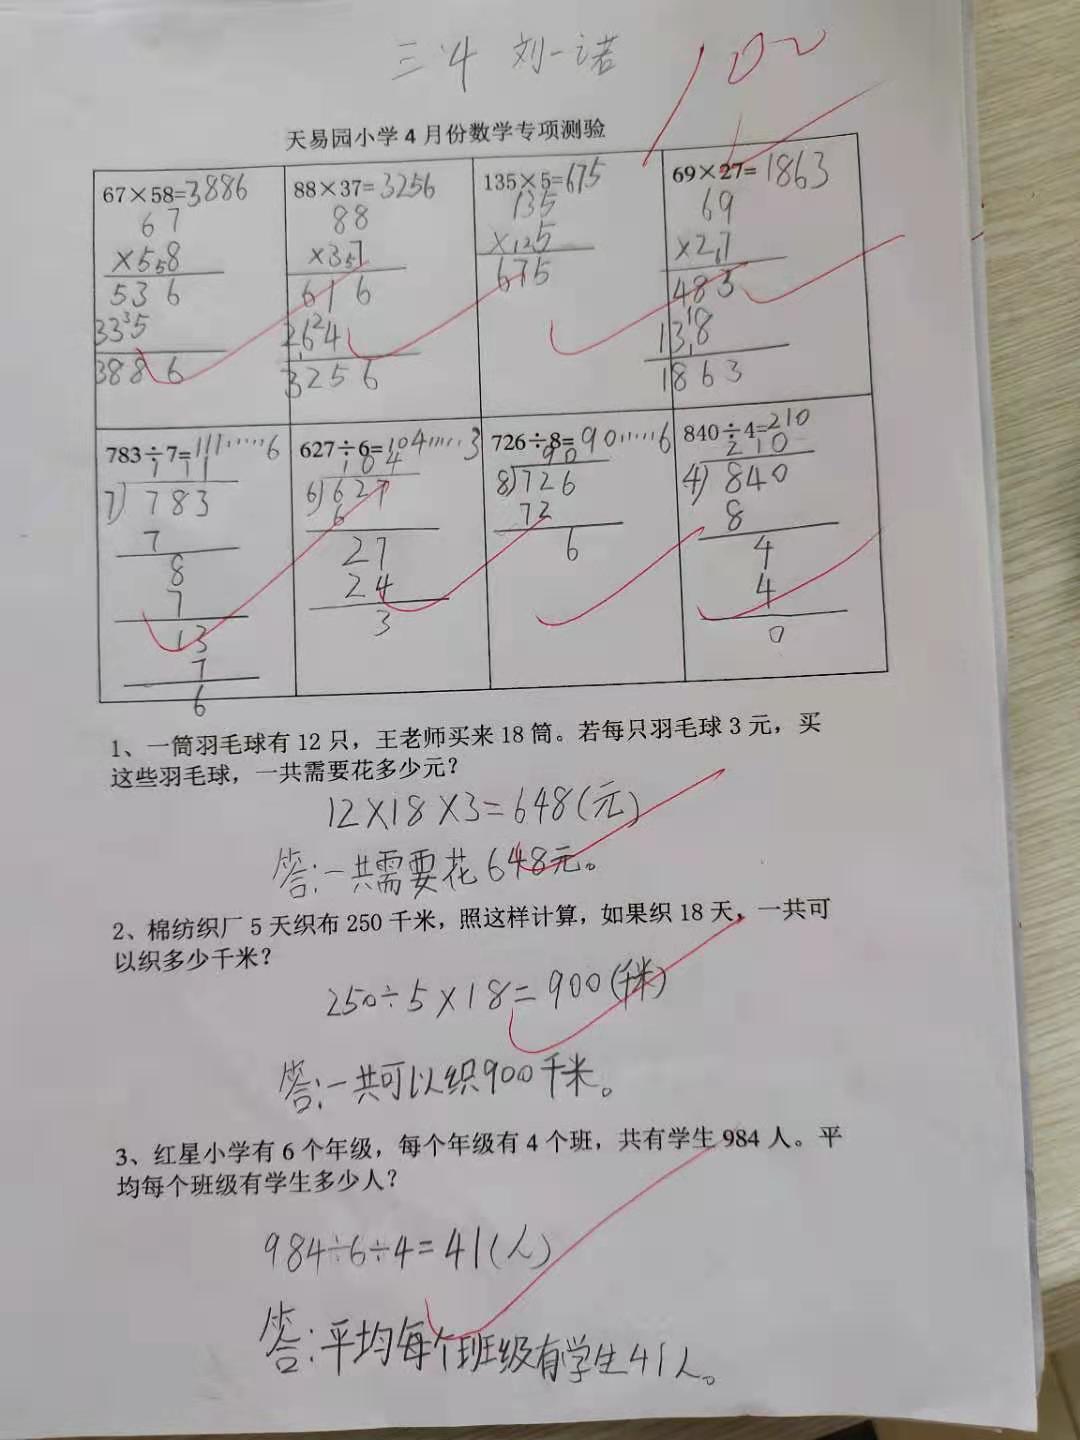 三4 刘一诺
100
天易园小学4月份数学专项测验
67×58=3886
67
×5₅8
536
33³5
3886
88×37=3256
88
×3₅7
616
26²4
3256
135×5=675
135
×₁₂5
675
69×27=1863
69
×2₆7
483
13¹8
1863
783÷7=111……6
111
7)783
7
8
7
13
7
6
627÷6=104……3
104
6)627
6
27
24
3
726÷8=90……6
90
8)726
72
6
840÷4=210
210
4)840
8
4
4
0
1、一筒羽毛球有12只，王老师买来18筒。若每只羽毛球3元，买
这些羽毛球，一共需要花多少元？
12×18×3=648(元)
答:一共需要花648元。
2、棉纺织厂5天织布250千米，照这样计算，如果织18天，一共可
以织多少千米？
250÷5×18=900(千米)
答:一共可以织900千米。
3、红星小学有6个年级，每个年级有4个班，共有学生984人。平
均每个班级有学生多少人？
984÷6÷4=41(人)
答:平均每个班级有学生41人。